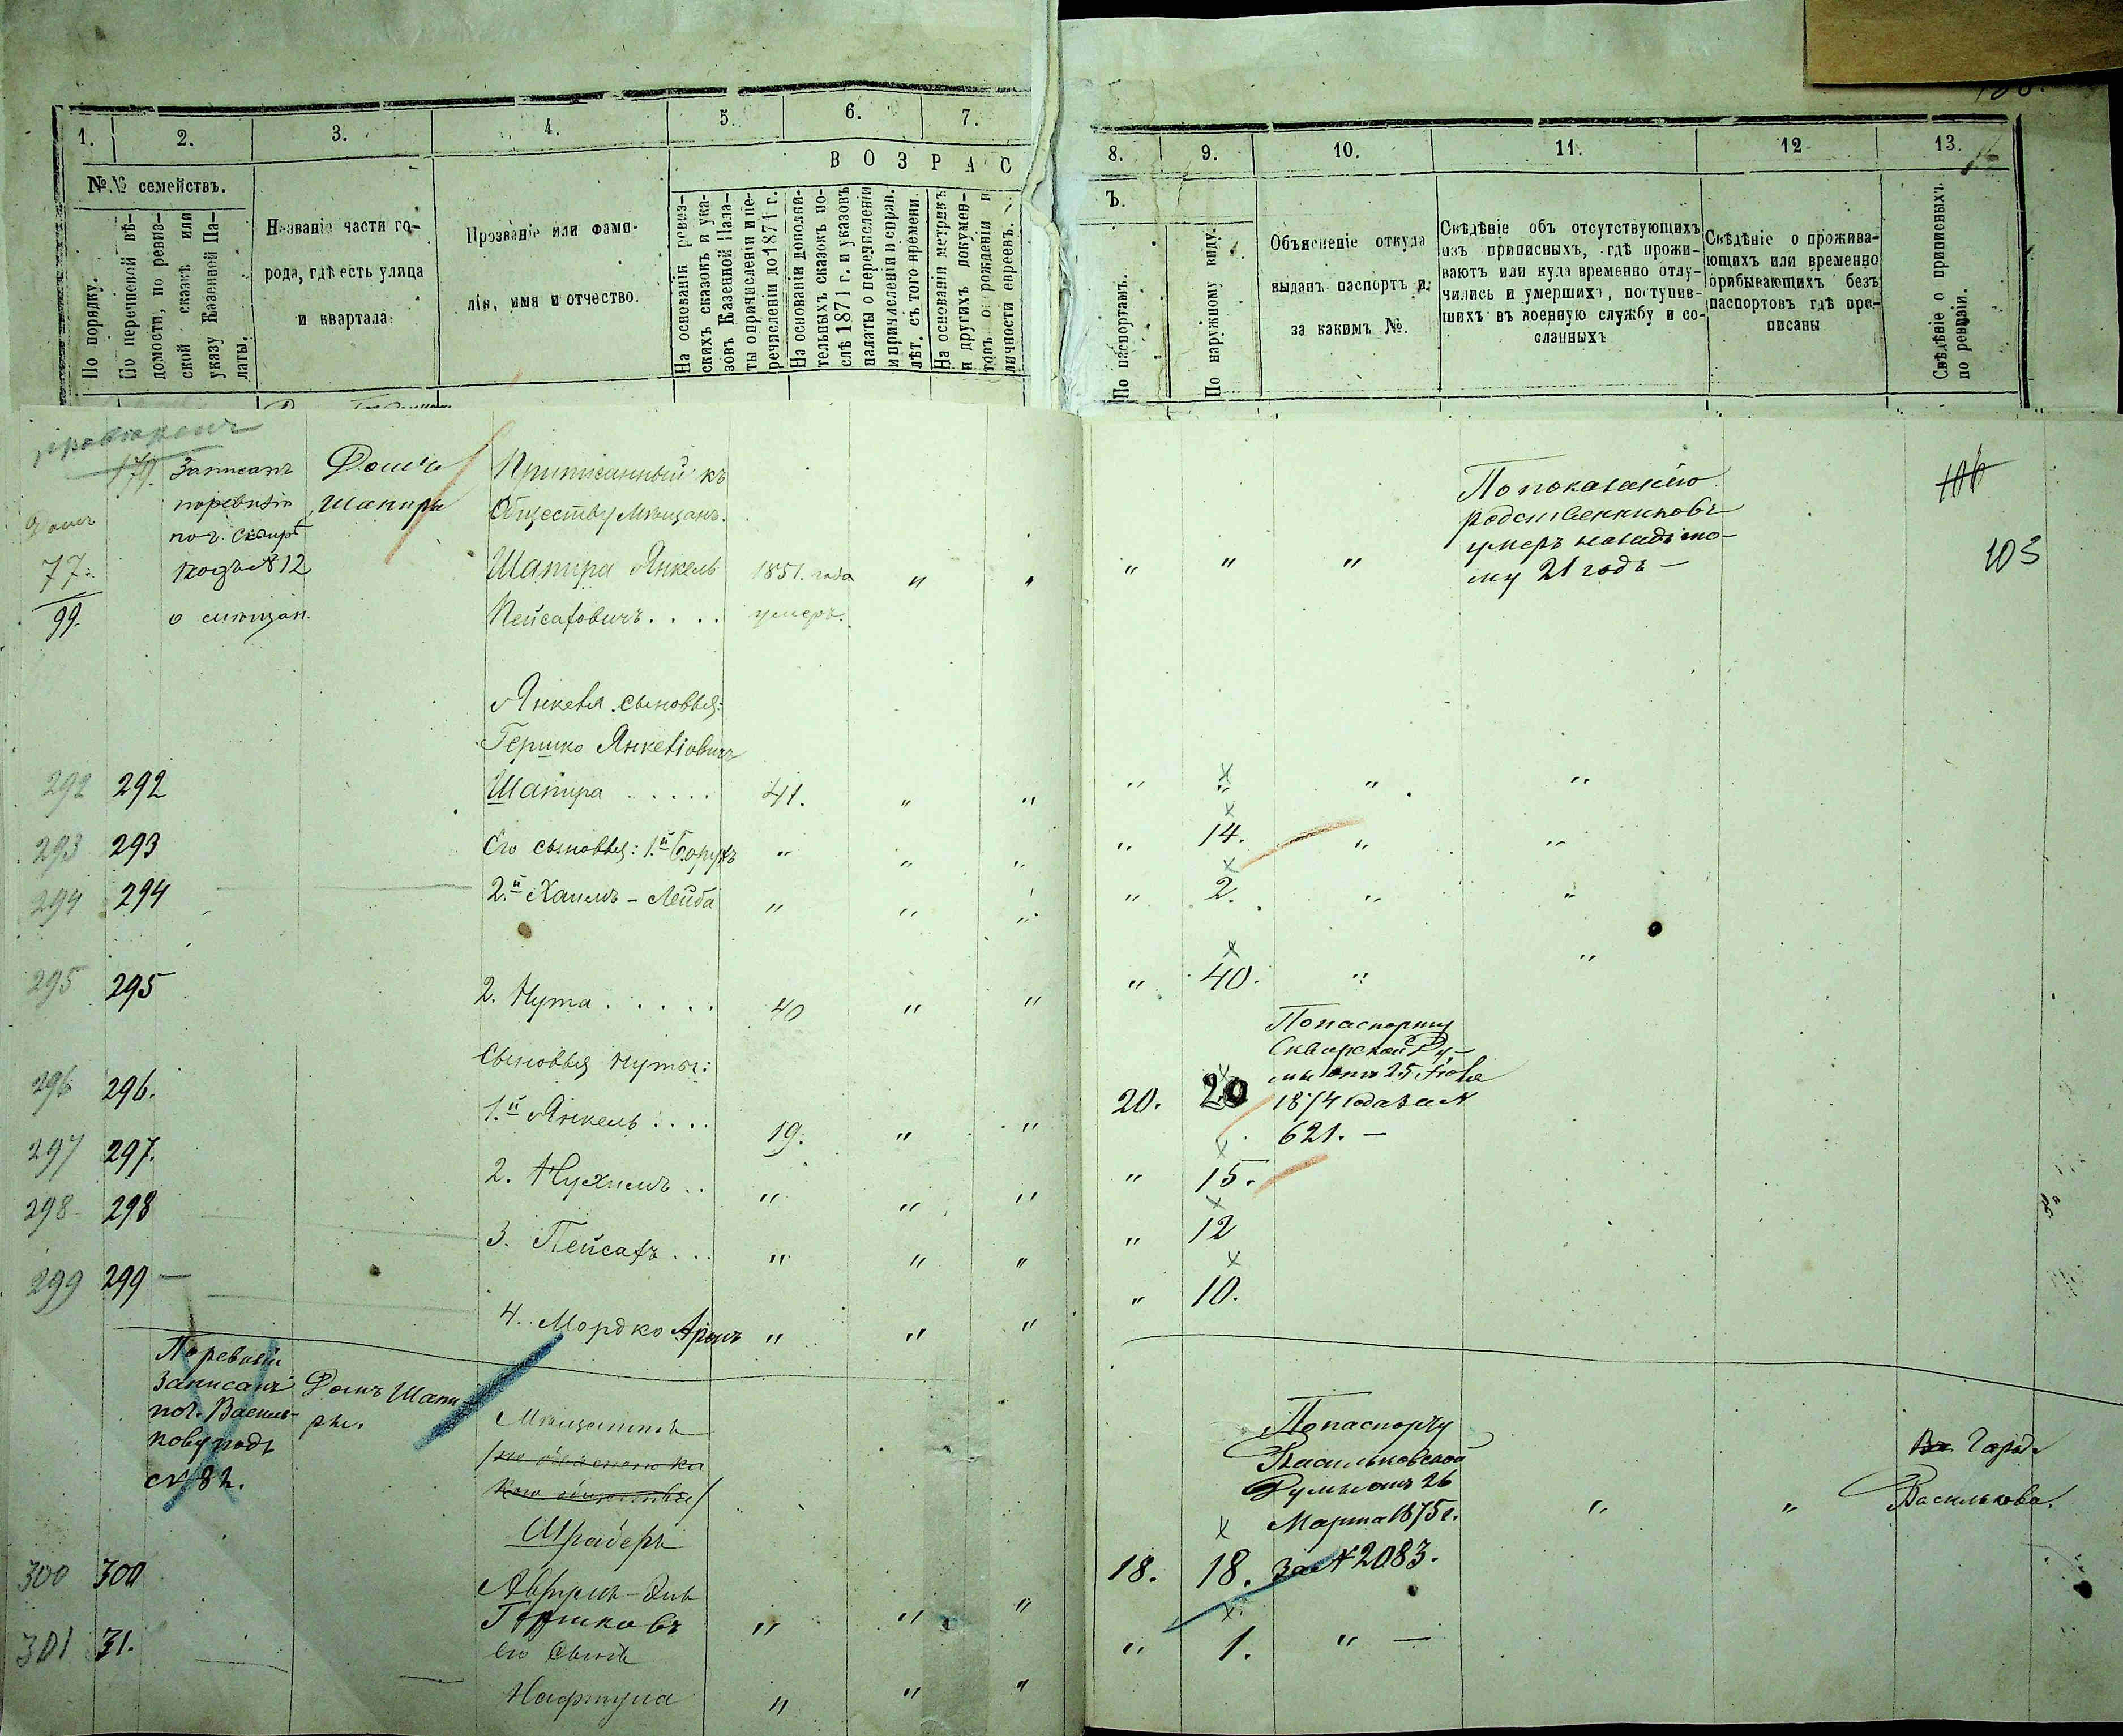 1. 2. 3. 4. 5. 6. 7.
8. 9. 10. 11. 12 13.
ВОЗРАС
Ъ.
№№ семействъ.
По порядку.
По перечневой вѣ-
домости, по ревиз-
ской сказкѣ или
указу Казенной Па-
латы.
Названіе части го-
рода, гдѣ есть улица
и квартала.
Прозваніе или фами-
лія, имя и отчество.
На основаніи ревиз-
скихъ сказокъ и ука-
зовъ Казенной Пала-
ты о причисленіи и пе-
речисленіи до 1871 г.
На основаніи дополни-
тельныхъ сказокъ по-
слѣ 1871 г. и указовъ
палаты о перечисленіи
и причисленіи и справ.
лѣт. съ того времени.
На основаніи метрикъ
и другихъ докумен-
товъ о рожденіи и
личности евреевъ.
По паспортамъ.
По наружному виду.
Объясненіе откуда
выданъ паспортъ и
за какимъ №.
Свѣдѣніе объ отсутствующихъ
изъ приписныхъ, гдѣ прожи-
ваютъ или куда временно отлу-
чились и умершихъ, поступив-
шихъ въ военную службу и со-
сланныхъ
Свѣдѣніе о прожива-
ющихъ или временно
прибывающихъ безъ
паспортовъ гдѣ при-
писаны
Свѣдѣніе о приписныхъ
по ревизіи.
Записанъ
по ревизіи
по г. Сквирѣ
подъ №12
о снищан.
77.
99.
Домъ
Шапира
Приписанный къ
Обществу Мѣщанъ.
Шапира Янкель 1851. года " " " " "
Пейсаховичъ . . . . умеръ.
По показанію
родственниковъ
умеръ назадъ то-
му 21 годъ —
106
103
Янкеля сыновья:
Гершко Янкеліовичъ
292 292 Шапира . . . . . 41. " " " " " "
293 293 Его сыновья: 1.й Борухъ " " " " 14. " "
294 294 2.й Хаимъ-Лейба " " " " 2. " "
295 295 2. Нута . . . . . 40 " " " 40. " "
Сыновья Нуты:
296 296. 1.й Янкель . . . . 19. " " 20. 20
По паспорту
Сквирской Ду-
мы отъ 25 Іюля
1874 года за №
621. —
297 297. 2. Нухимъ . . " " " " 15.
298 298 3. Пейсахъ . . . " " " " 12
299 299 — 4. Мордко Аронъ " " " " 10.
По ревизіи
записанъ
по г. Василь-
кову подъ
№ 82.
Домъ Шапи-
ры.
Мѣщанинъ
Шрабертъ
300 300 Аврумъ-Эль
Гершковъ " " " 18. 18.
По паспорту
Васильковской
Думы отъ 26
Марта 1875 г.
за №2083.
" "
Въ Городѣ
Василькова.
301 31. его Сынъ
Нафтула " " " " 1. " —